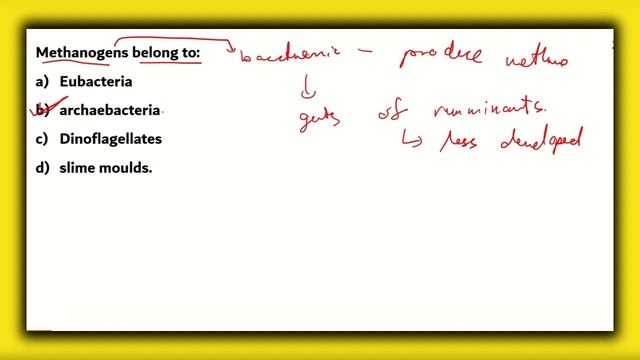 Methanogens belong to:
bacteria - produce metha
a) Eubacteria
b) archaebacteria
guts of ruminants.
c) Dinoflagellates
↳ less developed
d) slime moulds.